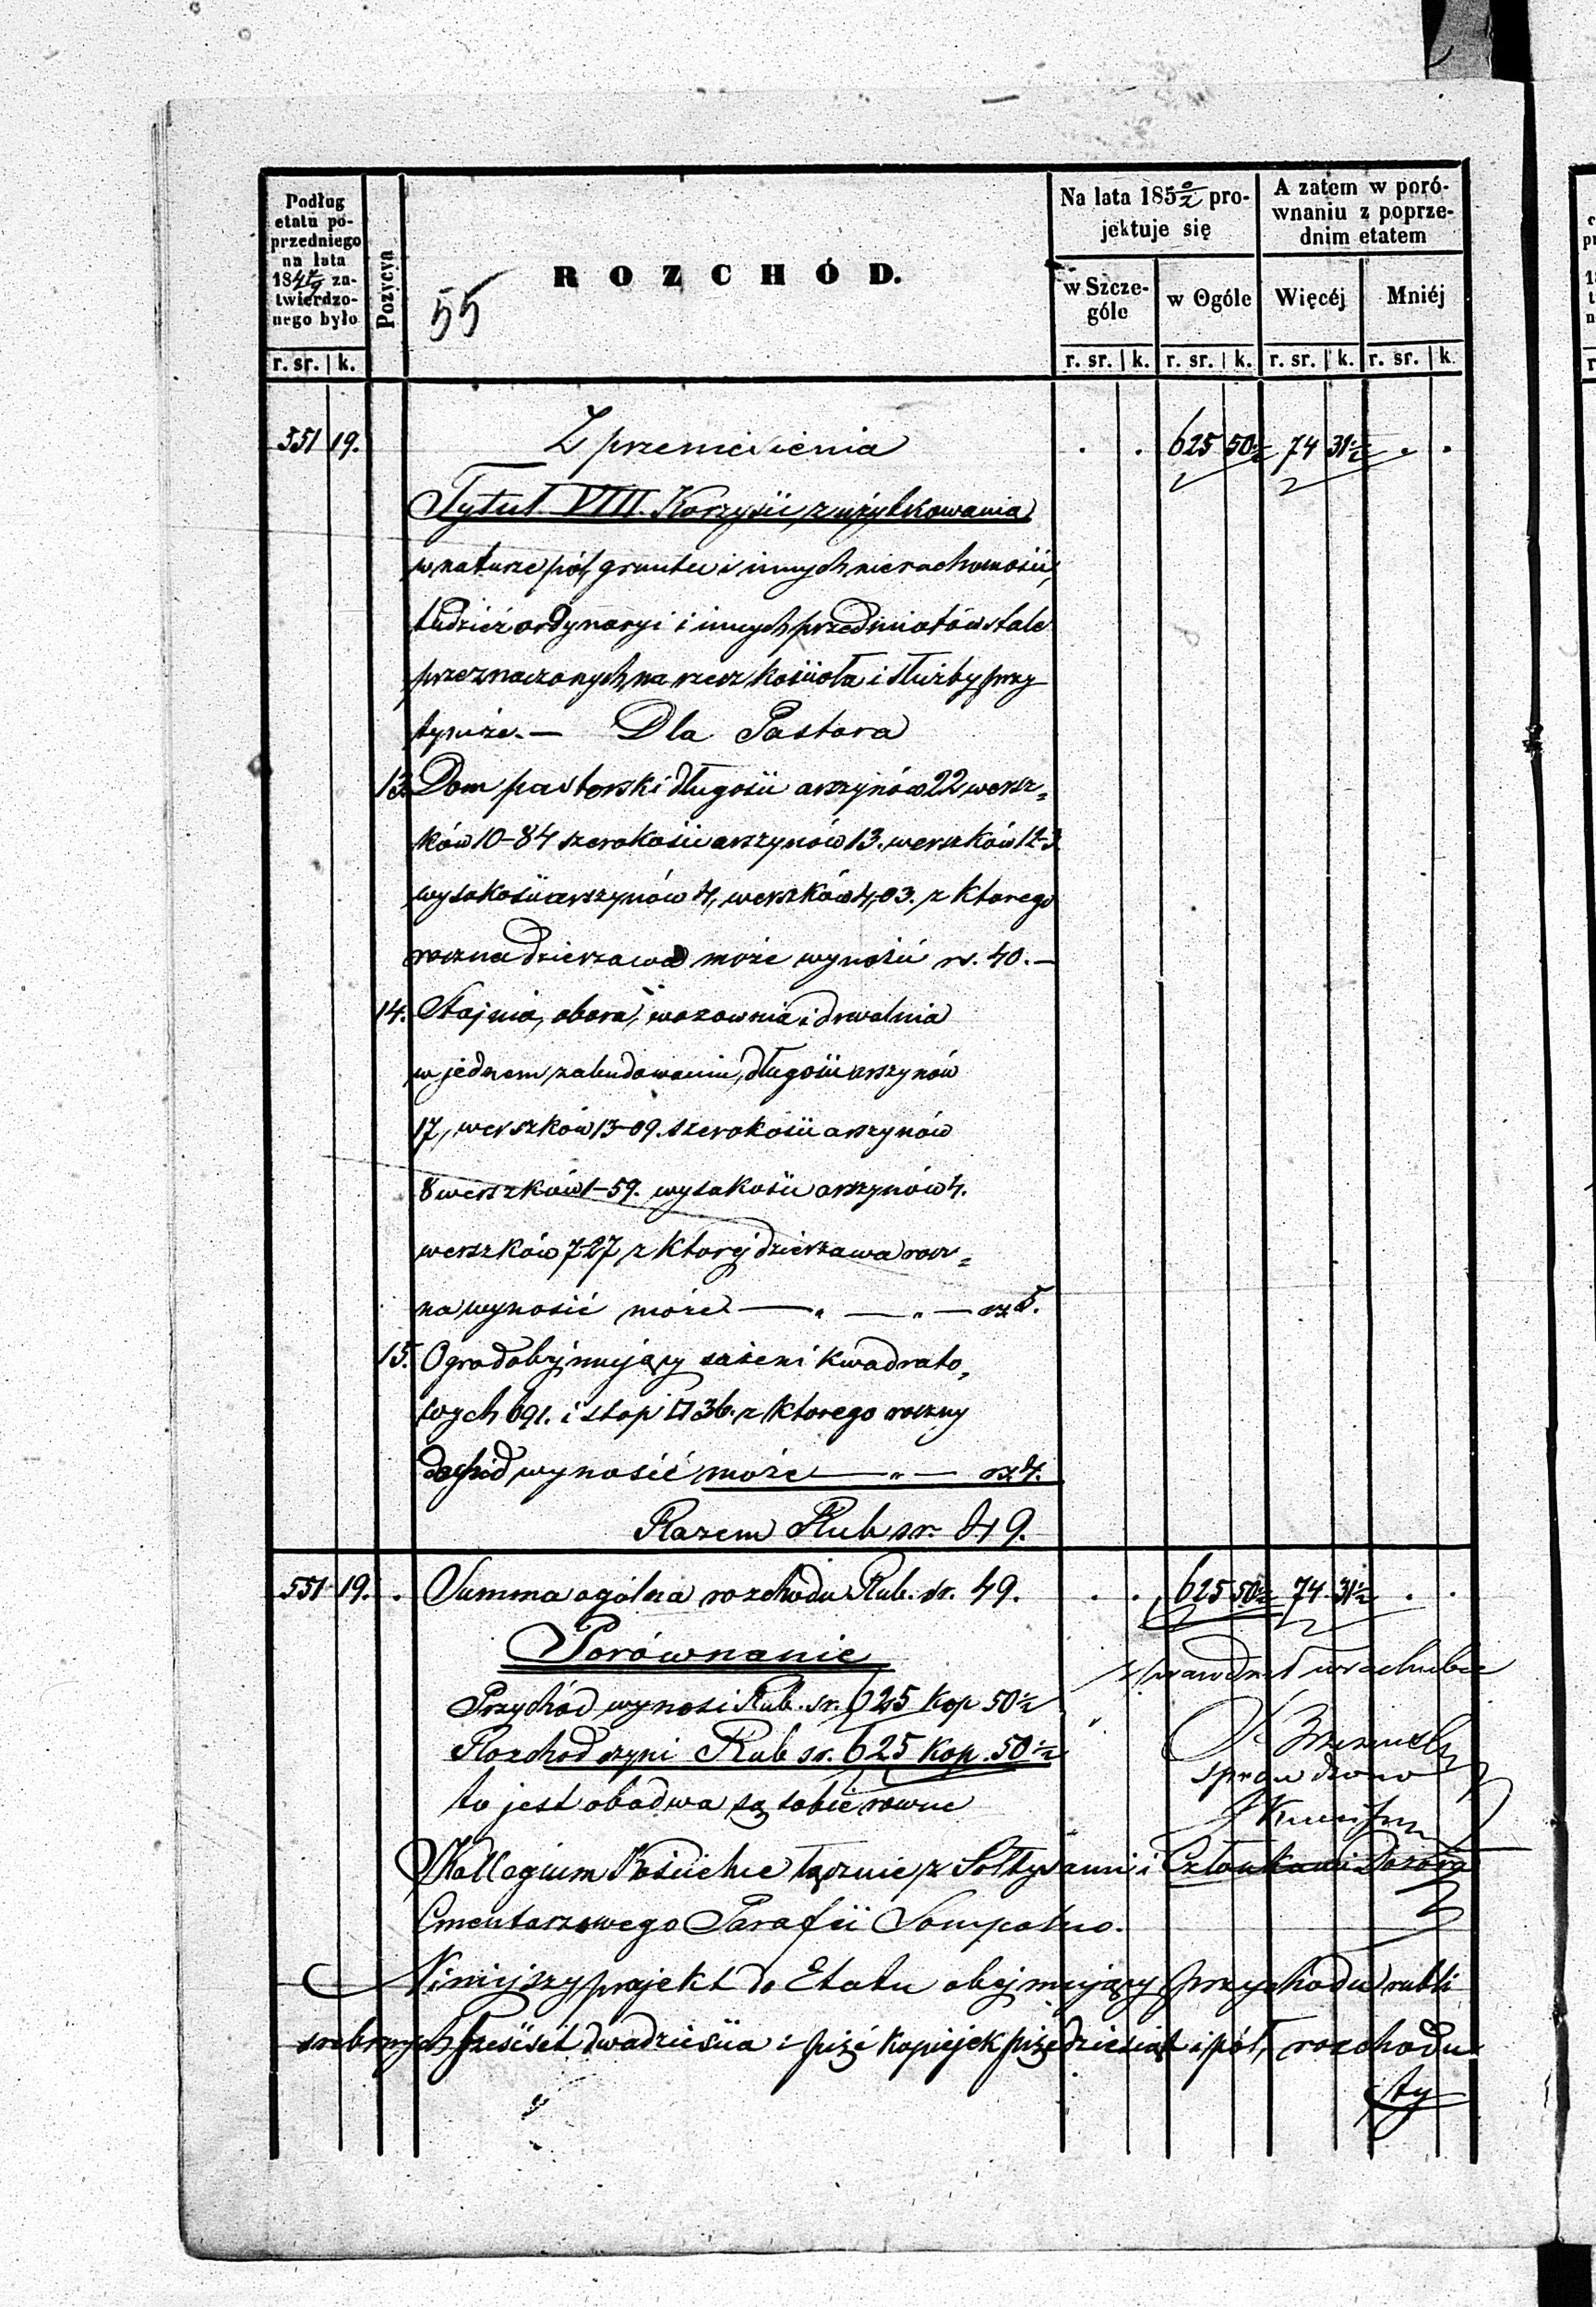 Podług
etatu po-
przedniego
na lata
184 7/9 za-
twierdzo-
nego było
r. sr. | k.
Pozycya
ROZCHÓD.
55
Na lata 185 0/2 pro-
jektuje się
w Szcze-
góle
w Ogóle
r. sr. | k. r. sr. | k.
A zatem w poró-
wnaniu z poprze-
dnim etatem
Więcéj Mniéj
r. sr. | k. r. sr. | k.
551 19. Z przeniesienia . . 625 50½ 74 31½ . .
Tytuł VIII. Korzyści z użytkowania
w naturze pól, gruntu i innych nieruchomości,
tudzież ordynaryi i innych przedmiotów stale
przeznaczonych na rzecz kościoła i służby przy
tymże. — Dla Pastora
13. Dom pastorski długości arszynów 22 wersz-
ków 10-84 szerokości arszynów 13. werszków 12-3
wysokości arszynów 4, werszków 4,03. z ktorego
roczna dzierzawa może wynosić rs. 40. —
14. Stajnia, obora, wozownia i drwalnia
w jednem zabudowaniu, długości arszynów
17, werszków 13-09. szerokości arszynów
8 werszków 1-59. wysokości arszynów 4.
werszków 7-27 z ktorej dzierzawa rocz-
na wynosić może — " — " — rs 5.
15. Ogrod obejmujący sażeni kwadrato-
wych 691. i stop □ 36. z ktorego roczny
dochód wynosić może — " — rs 4.
Razem Rub sr. 49.
551 19. . Summa ogólna rozchodu Rub. sr. 49. . . 625 50½ 74 31½ . .
Porównanie
Przychód wynosi Rub. sr. 625 kop 50½
Rozchod czyni Rub sr. 625 kop. 50½
to jest obadwa są sobie rowne
sprawdził w rachubie
sprawdzono
Kollegium Kościelne łącznie z Sołtysami i Członkami Dozoru
Cmentarzowego Parafii Sompolno.
Niniejszy projekt do Etatu obejmujący przychodu rubli
srebrnych sześćset dwadzieścia i pięć kopiejek pięćdziesiąt i pół, rozchodu